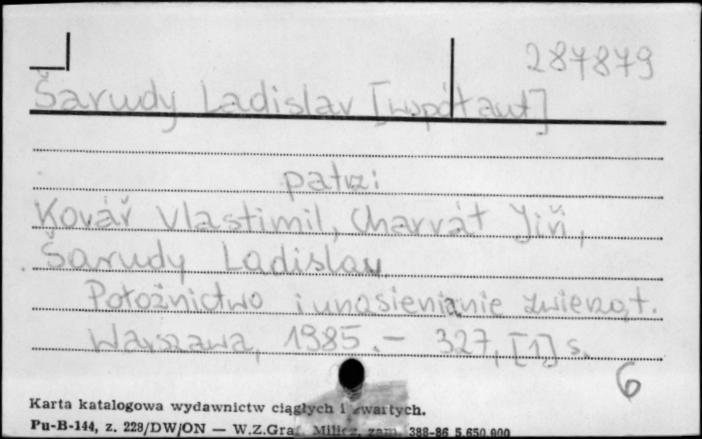 287879
Šarudy Ladislav [współaut]
patrz:
Kovář Vlastimil, Charvát Jiří,
Šarudy Ladislav
Położnictwo i unasienianie zwierząt.
Warszawa, 1985. - 327, [1] s.
6
Karta katalogowa wydawnictw ciągłych i zwartych.
Pu-B-144, z. 228/DW/ON — W.Z.Graf. Milicz, zam. 388-86 5.650.000